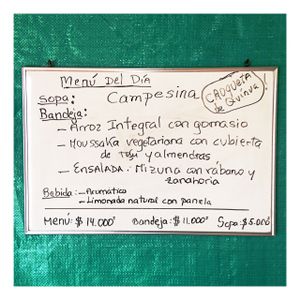 Menú Del Día
Sopa: Campesina
CROQUETA
de
Quinua
Bandeja:
– Arroz Integral con gomasio
– Moussaka vegetariana con cubierta
de Tofú y almendras
– Ensalada: Mizuna con rábano y
zanahoria
Bebida: – Aromática
– Limonada natural con panela
Menú: $ 14.000 Bandeja: $ 11.000 Sopa: $ 5.000